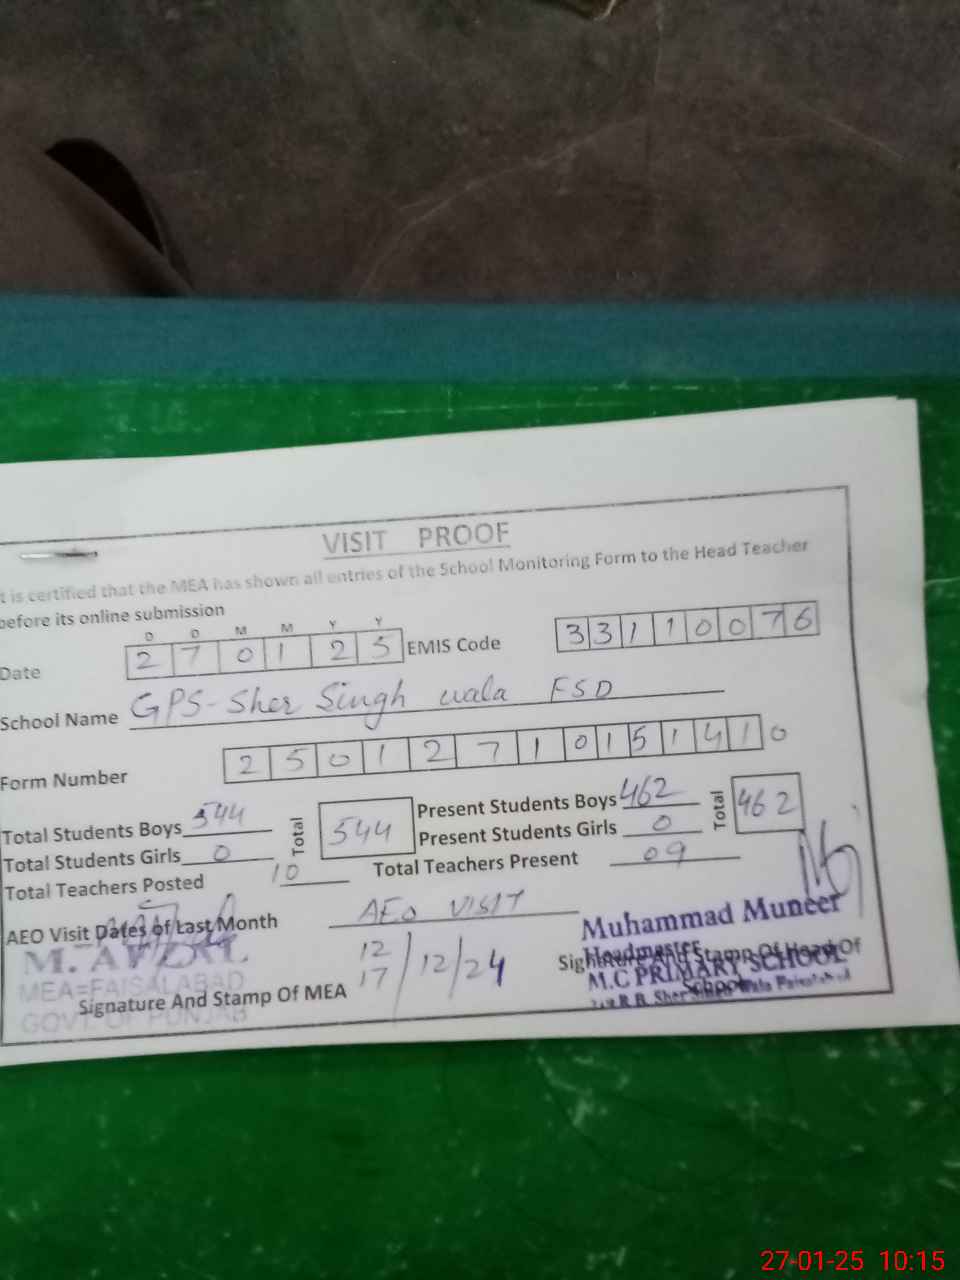 VISIT PROOF
t is certified that the MEA has shown all entries of the School Monitoring Form to the Head Teacher
before its online submission
D D M M Y Y
Date 2 7 0 1 2 5 EMIS Code 3 3 1 1 0 0 7 6
School Name GPS-Sher Singh wala FSD
Form Number 2 5 0 1 2 7 1 0 1 5 1 4 1 0
Total Students Boys 544 Total 544 Present Students Boys 462 Total 462
Total Students Girls 0 Present Students Girls 0
Total Teachers Posted 10 Total Teachers Present 09
AEO Visit Dates of Last Month AEO VISIT
12
17 /12/24
M. AFZAL
MEA=FAISALABAD
GOVT. OF PUNJAB
Signature And Stamp Of MEA
Muhammad Muneer
Headmaster
M.C PRIMARY SCHOOL
R.B. Sher Singh Wala Faisalabad
Signature And Stamp Of Head Of
School
27-01-25 10:15